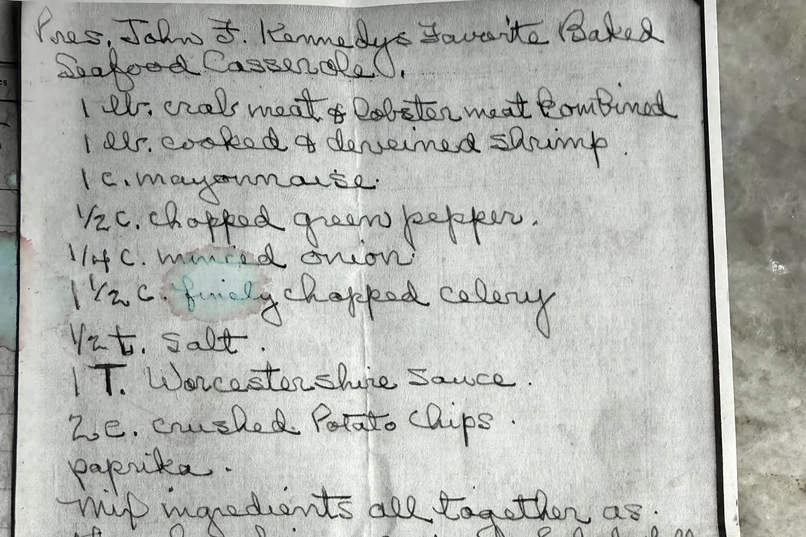 Pres. John F. Kennedys Favorite Baked
Seafood Casserole.
1 lb. crab meat & lobster meat kombined
1 lb. cooked & deveined shrimp.
1 c. mayonnaise.
1/2 c. chopped green pepper.
1/4 c. minced onion
1 1/2 c. finely chopped celery
1/2 t. salt.
1 T. Worcestershire sauce.
2 c. crushed Potato chips.
paprika.
Mix ingredients all together as.